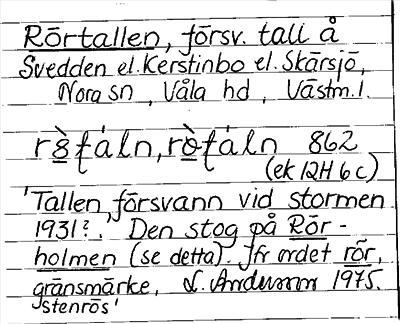 Rörtallen, försv. tall å
Svedden el. Kerstinbo el. Skärsjö,
Nora sn, Våla hd, Västm. l.
862
(ek 12H 6 c)
'Tallen, försvann vid stormen
1931?. Den stog på Rör-
holmen (se detta). Jfr ordet rör,
gränsmärke, L. Andersson 1975.
stenrös'